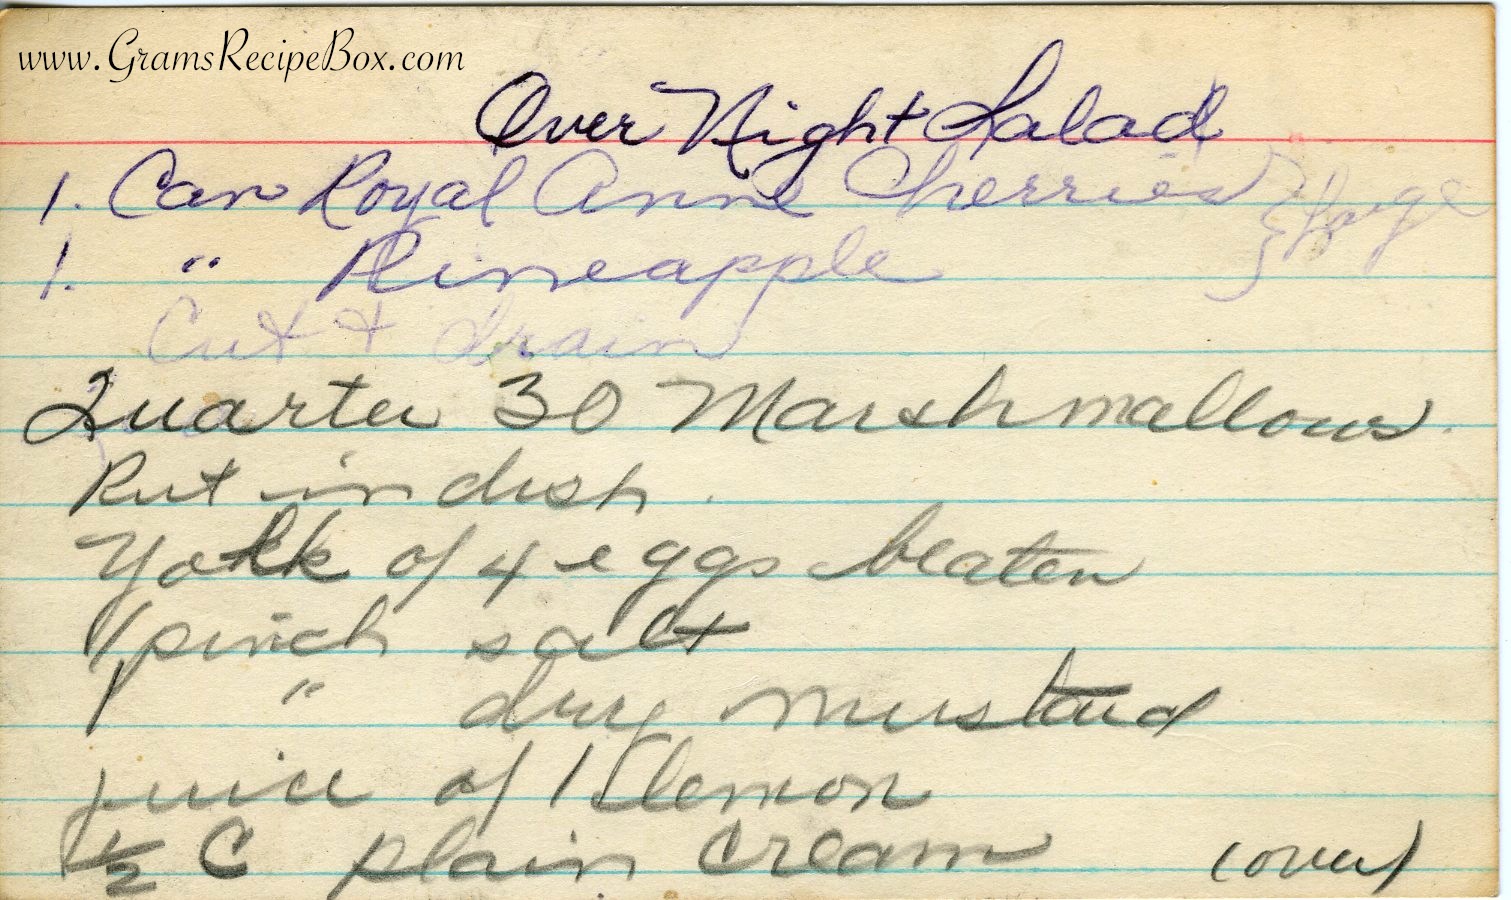 www.GramsRecipeBox.com
Over Night Salad
1. Can Royal Anne Cherries } Large
1. " Pineapple
Cut + drain
Quarter 30 Marshmallows.
Put in dish.
Yolk of 4 eggs beaten
1 pinch salt
1 " dry mustard
juice of 1 lemon
1/2 C plain cream (over)